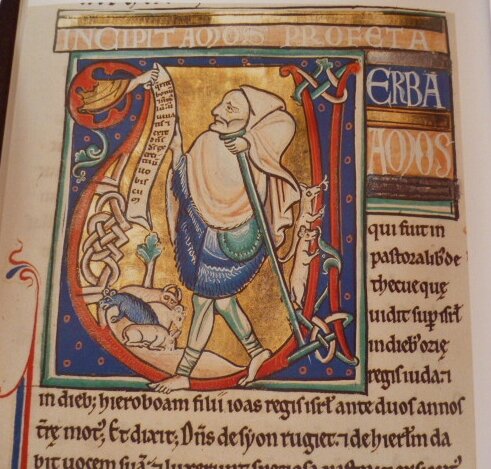 INCIPIT AMOS PROFETA
ERBA
AMOS
bonū
uiua
uo
bis
qui fuit in
pastoralib; de
thecue quę
uidit sup isrł
in dieb; ozię
regis iuda ⁊
in dieb; hieroboam filii ioas regis isrł ante duos annos
t̄rę mot; Et dixit; Dn̄s de syon rugiet ⁊ de hierłm da
bit uocem suā ⁊ luxerunt